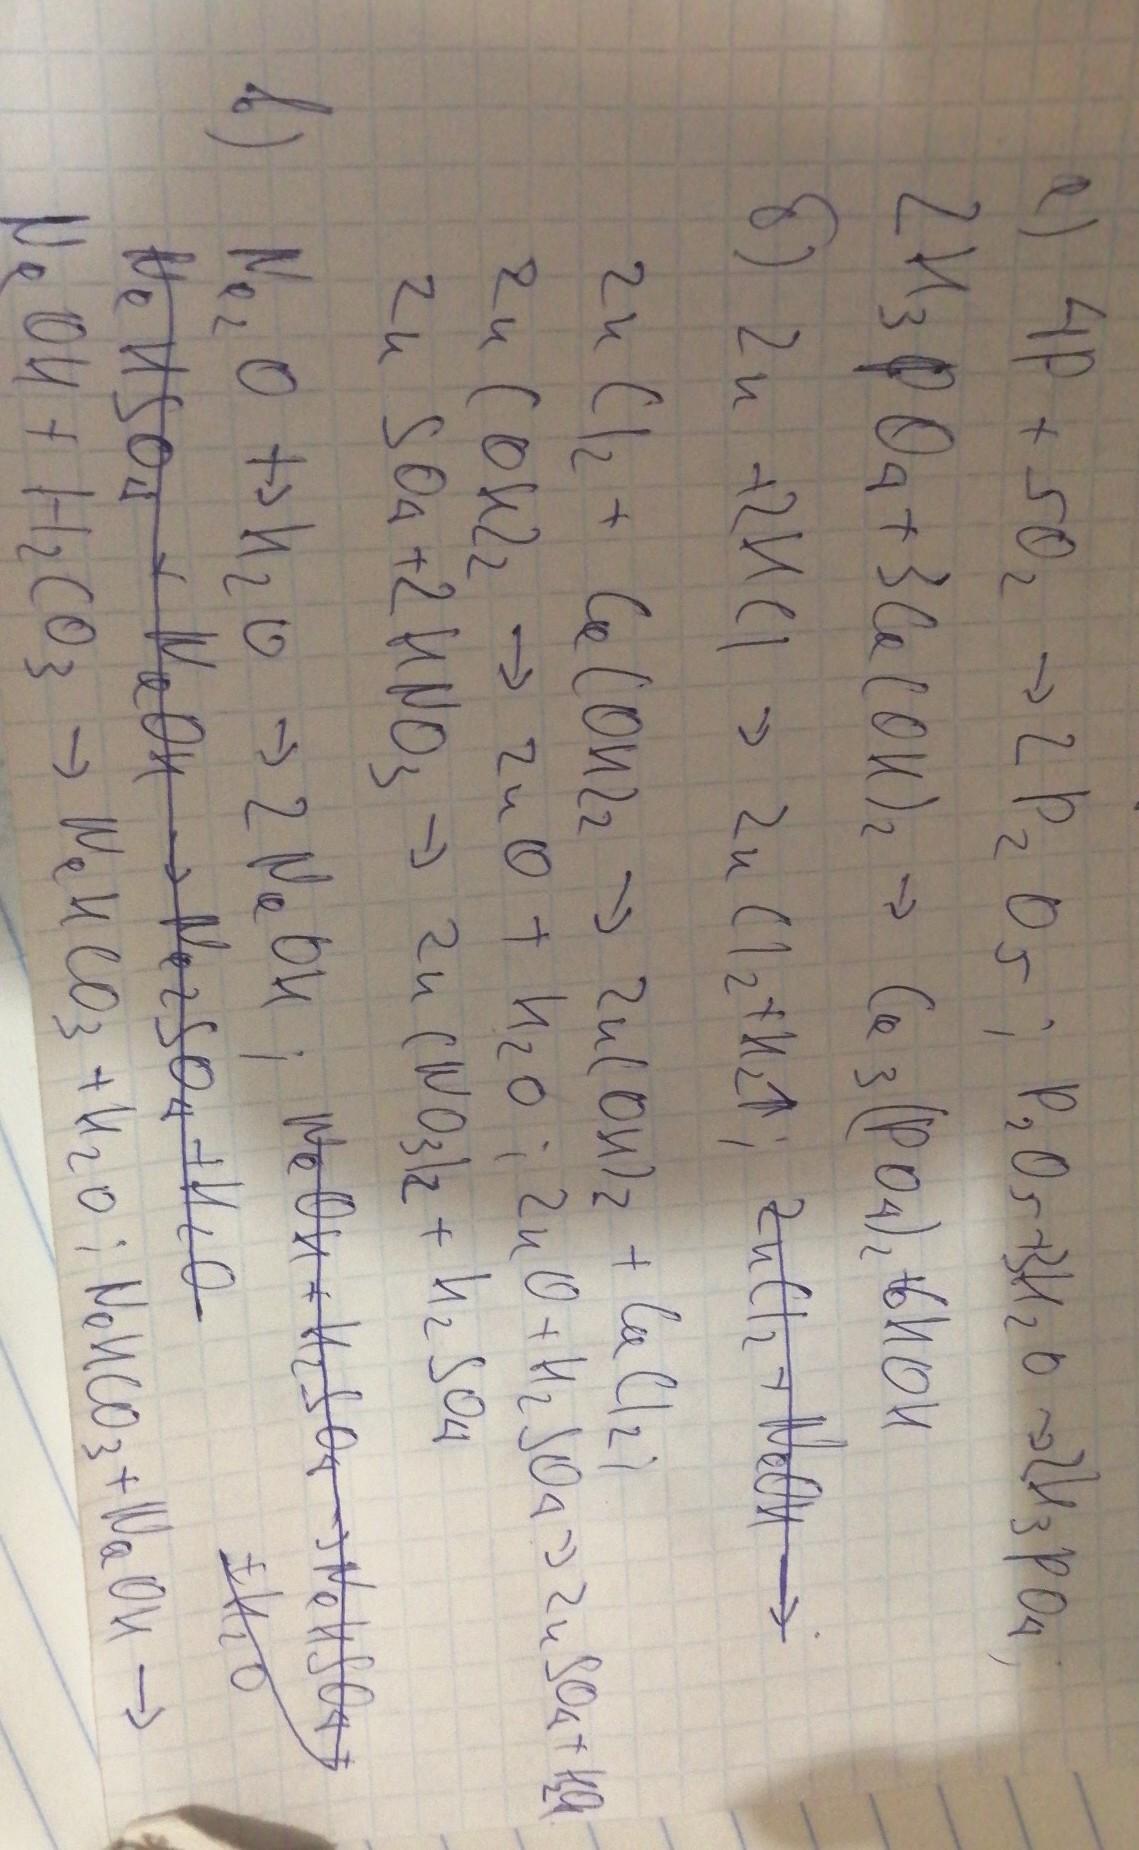 а) 4P + 5O2 → 2P2O5; P2O5+3H2O→2H3PO4;
2H3PO4+3Ca(OH)2 → Ca3(PO4)2+6HOH
б) Zn +2HCl → ZnCl2+H2↑; ZnCl2 + NaOH →
ZnCl2 + Ca(OH)2 → Zn(OH)2 + CaCl2;
Zn(OH)2 → ZnO + H2O; ZnO+H2SO4→ZnSO4+H2O
ZnSO4+2HNO3 → Zn(NO3)2 + H2SO4
в) Na2O +→H2O → 2NaOH; NaOH+H2SO4→NaHSO4+
+H2O
NaHSO4 + NaOH → Na2SO4+H2O
NaOH+H2CO3 → NaHCO3+H2O; NaHCO3+NaOH →